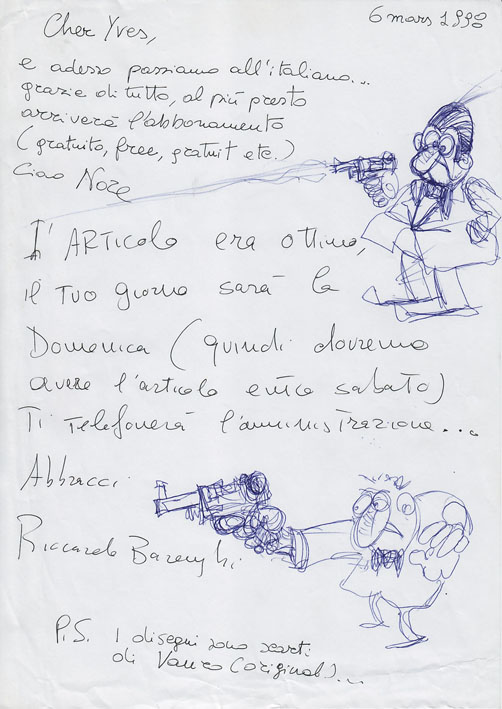 6 mars 1998
Cher Yves,
e adesso passiamo all'italiano...
grazie di tutto, al più presto
arriverà l'abbonamento
(gratuito, free, gratuit etc.)
Ciao
L'ARTicolo era ottimo,
il Tuo giorno sarà la
Domenica (quindi dovremo
avere l'articolo entro sabato)
Ti Telefonerà l'amministrazione...
Abbracci
Riccardo Barenghi
P.S. I disegni sono scarti
di Vauro (originali)...